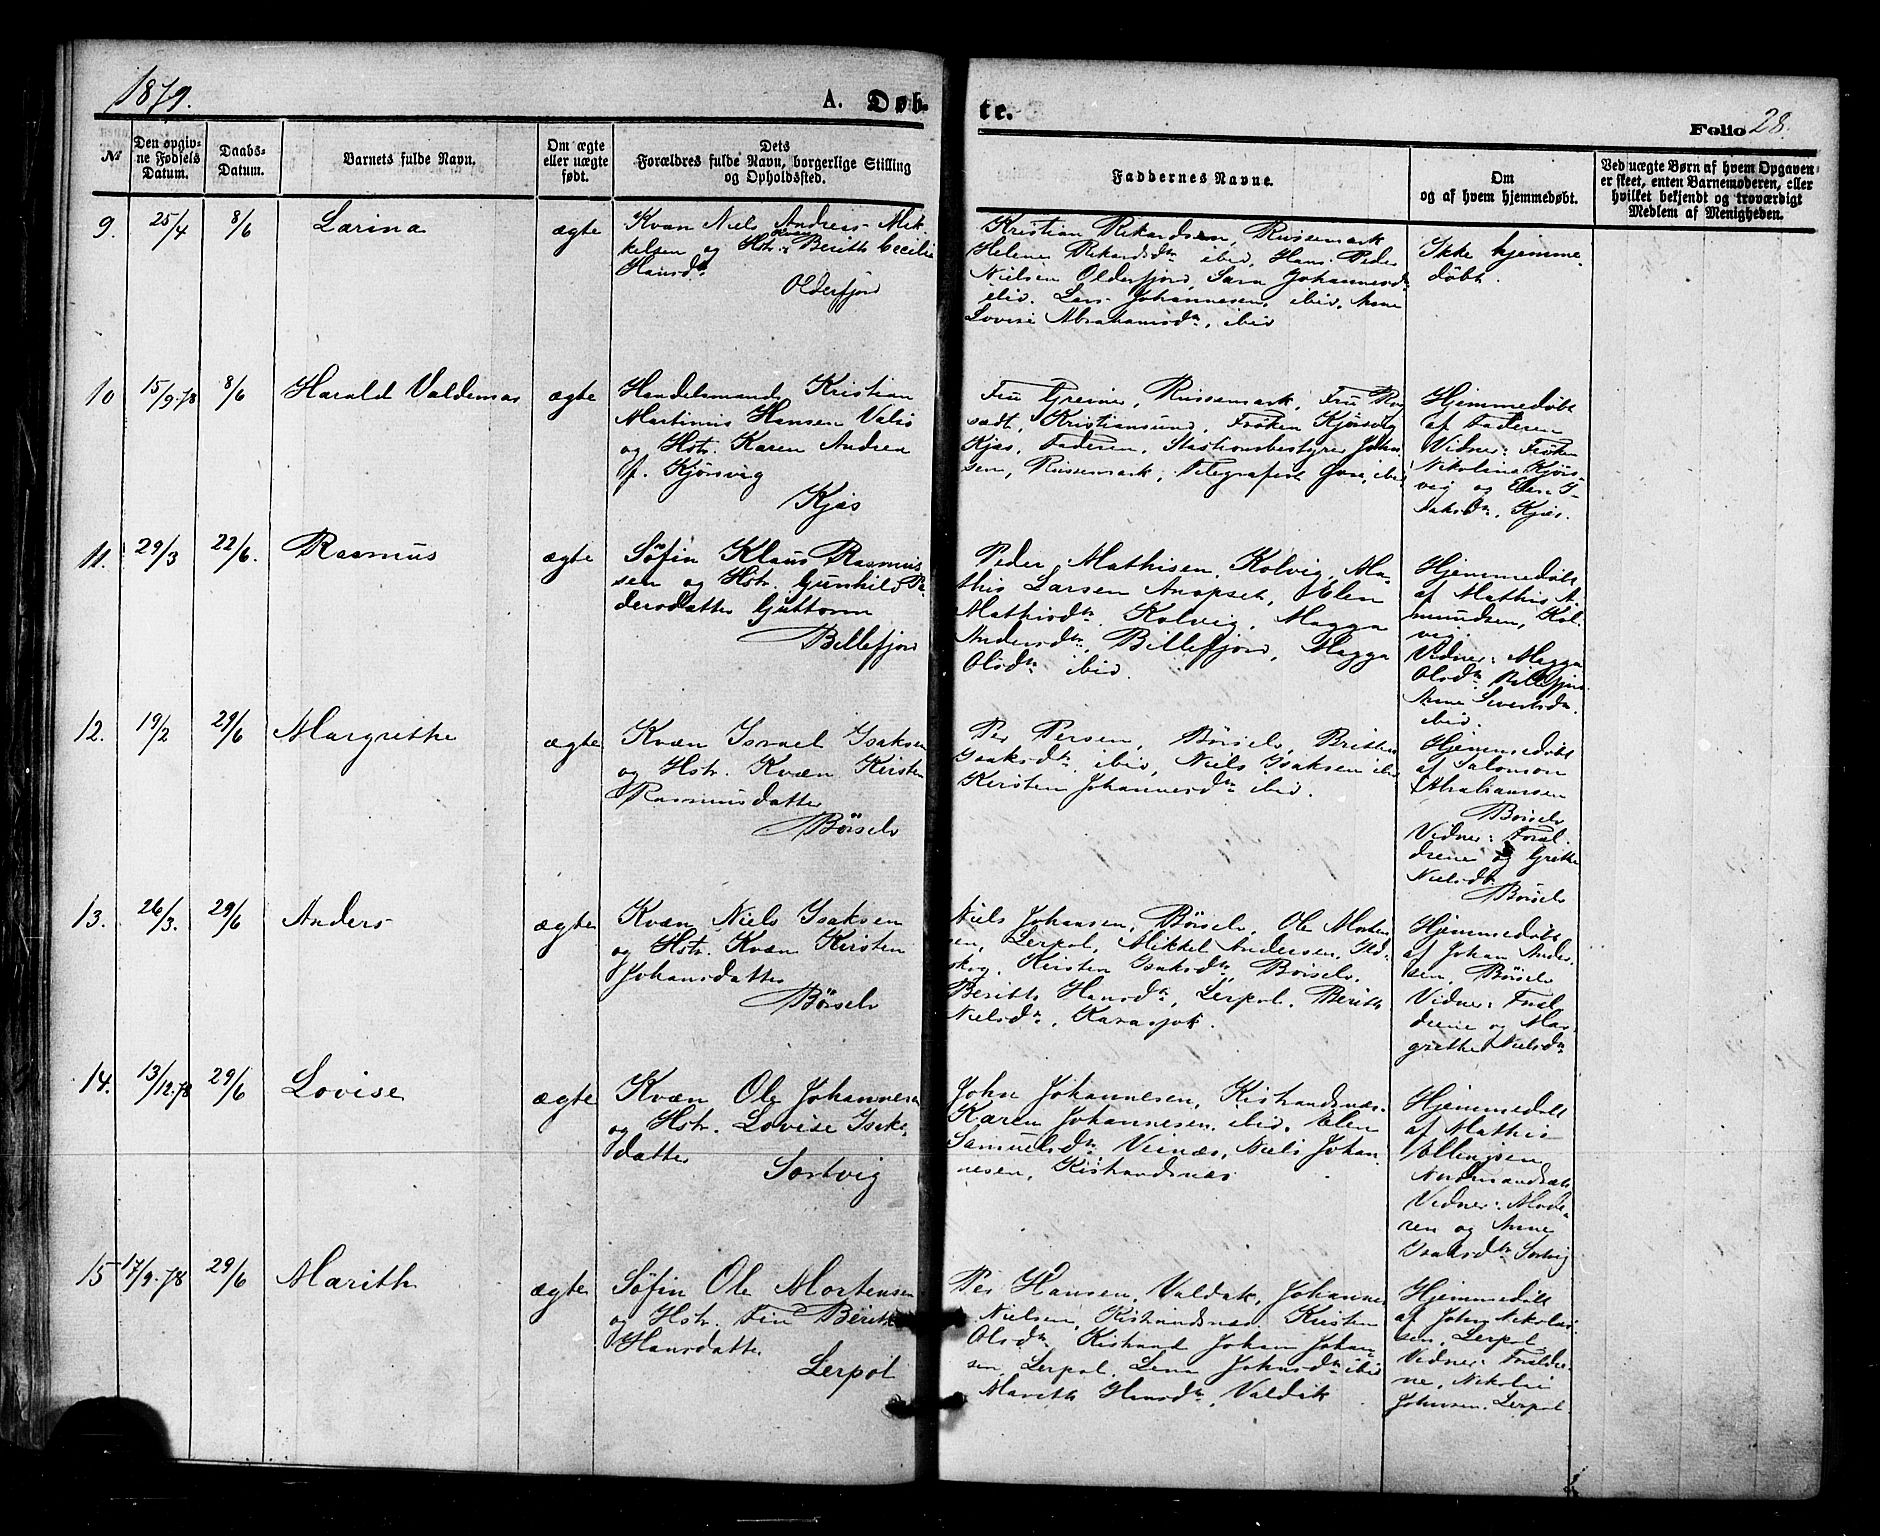 1879.
A. Døb-
te.
Folio 28.
№
Den opgiv-
ne Fødsels
Datum.
Daabs-
Datum.
Barnets fulde Navn.
Om ægte
eller uægte
født.
Dets
Forældres fulde Navn, borgerlige Stilling
og Opholdssted.
Faddernes Navne.
Om
og af hvem hjemmedøbt.
Ved uægte Børn af hvem Opgaven
er skeet, enten Barnemoderen, eller
hvilket bekjendt og troværdigt
Medlem af Menigheden.
9.
25/4
8/6
Larina
ægte
Kvæn Niels Andreas Mik-
kelsen og Hstr. Kvæn Beritth Cecilie
Hansdtr
Olderfjord
Kristian Rikardsen, Russemark
Helene Rikardsdtr ibid, Hans Peder
Nielsen Olderfjord, Sara Johannesdtr
ibid. Lars Johannesen, ibid, Anne
Lovise Abrahamsdtr, ibid
Ikke hjemme-
døbt.
10
15/9.78
8/6
Harald Valdemar
ægte
Handelsmand Kristian
Martinus Hansen Valsø
og Hstr. Karen Andrea
f. Kjørsvig
Kjæs
Fru Greiner, Russemark, Fru
Kristiansund, Frøken Kjørsvig
Kjæs, Faderen, Stationsbestyrer Johan
sen, Russemark, Telegrafist
Hjemmedøbt
af Faderen
Vidner: Frøken
Nikoline Kjørs-
vig og Elen I-
saksdtr, Kjæs.
11.
29/3
22/6.
Rasmus
ægte
Søfin Klaus Rasmus
sen og Hstr. Gunhild Pe
dersdatter Guttorm
Billefjord
Peder Mathisen, Kolvig, Ma-
this Larsen Anopset, Elen
Mathisdtr. Kolvig, Magga
Andersdtr, Billefjord, Magga
Olsdtr ibid.
Hjemmedøbt
af Mathis A-
mundsen, Kol-
vig.
Vidner: Magga
Olsdtr Billefjord
Anne Sivertsdtr.
ibid.
12.
19/2
29/6
Margrethe
ægte
Kvæn Israel Isaksen
og Hstr. Kvæn Kirsten
Rasmusdatter
Børselv
Per Persen, Børselv, Britha
Isaksdtr ibid, Niels Isaksen ibid
Kirsten Johannesdtr ibid.
Hjemmedøbt
af Salomon
Abrahamsen
Børselv
Vidner: Foræl-
drene og Grethe
Nielsdtr
Børselv
13.
26/3.
29/6
Anders
ægte
Kvæn Niels Isaksen
og Hstr. Kvæn Kirsten
Johansdatter
Børselv
Niels Johansen, Børselv, Ole Morten
sen, Lerpol, Mikkel Andersen,
Kirsten Isaksdtr, Børselv,
Beritth Hansdtr, Lerpol. Berith
Nielsdtr, Karasjok.
Hjemmedøbt
af Johan Ander-
sen, Børselv
Vidner: Foræl
drene og Mar-
grethe Nielsdtr
14.
13/12.78
29/6
Lovise
ægte
Kvæn Ole Johannesen
og Hstr. Lovise Isaks-
datter
Sortvig
John Johannesen, Kistrandsnæs.
Karen Johannesen ibid, Elen
Samuelsdtr Veinæs, Niels Johan
nesen, Kistrandsnæs
Hjemmedøbt
af Mathis
Vidner: Mode-
ren og Anne
Isaksdtr Sortvig
15
17/9.78
29/6
Marith
ægte
Søfin Ole Mortensen
og Hstr. Fin Berith
Hansdatter
Lerpol
Per Hansen, Valdak, Johannes
Nielsen, Kistrandsnæs Kirsten
Olsdtr Kistrand Johan Johan
sen, Lerpol. Lena Johnsdtr ibid
Mareth Hansdtr, Valdak
Hjemmedøbt
af John Nikolai-
sen, Lerpol
Vidner: Forældre-
ne, Nikolai
Johnsen, Lerpol.